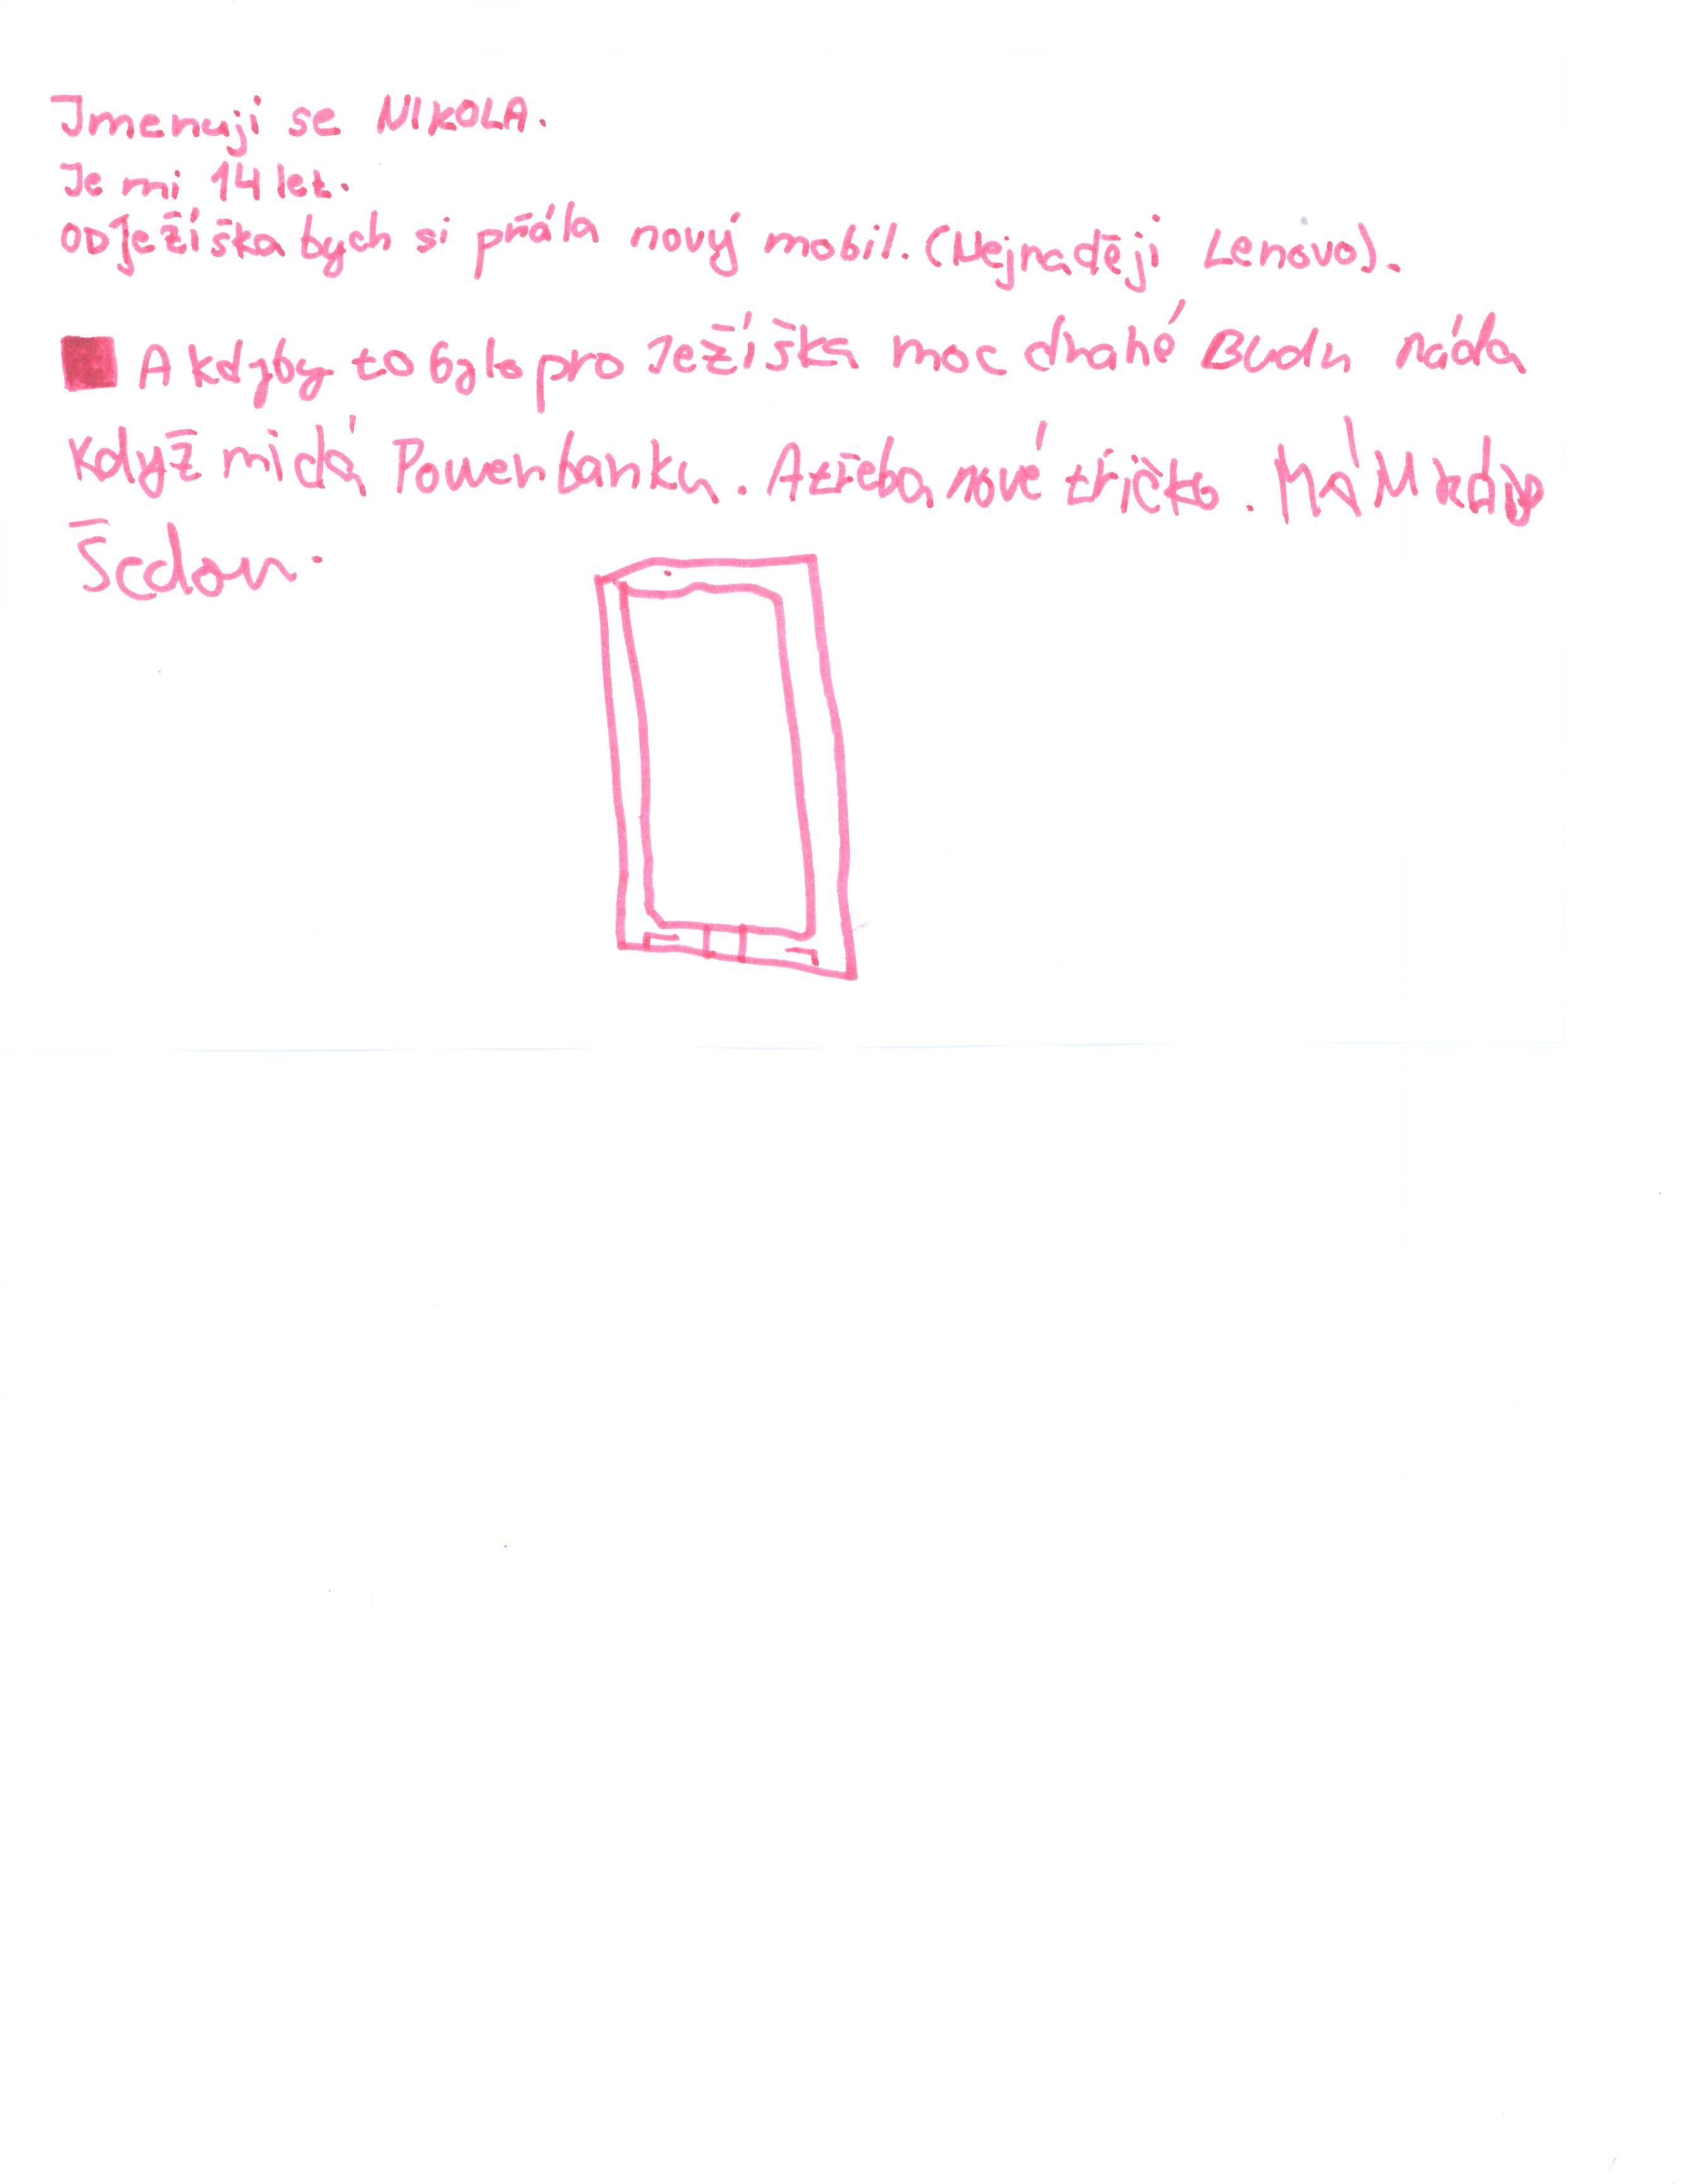 Jmenuji se NIKOLA.
Je mi 14 let.
OD Ježíška bych si přála nový mobil. (Nejraději Lenovo).
A kdyby to bylo pro Ježíška moc drahé Budu ráda
Když mi dá Powerbanku. A třeba nové tričko. MÁM rády
Šedou.